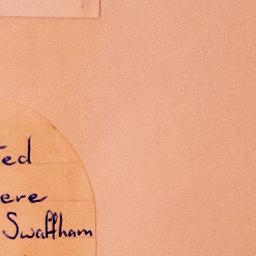 ted
ere
Swaffham